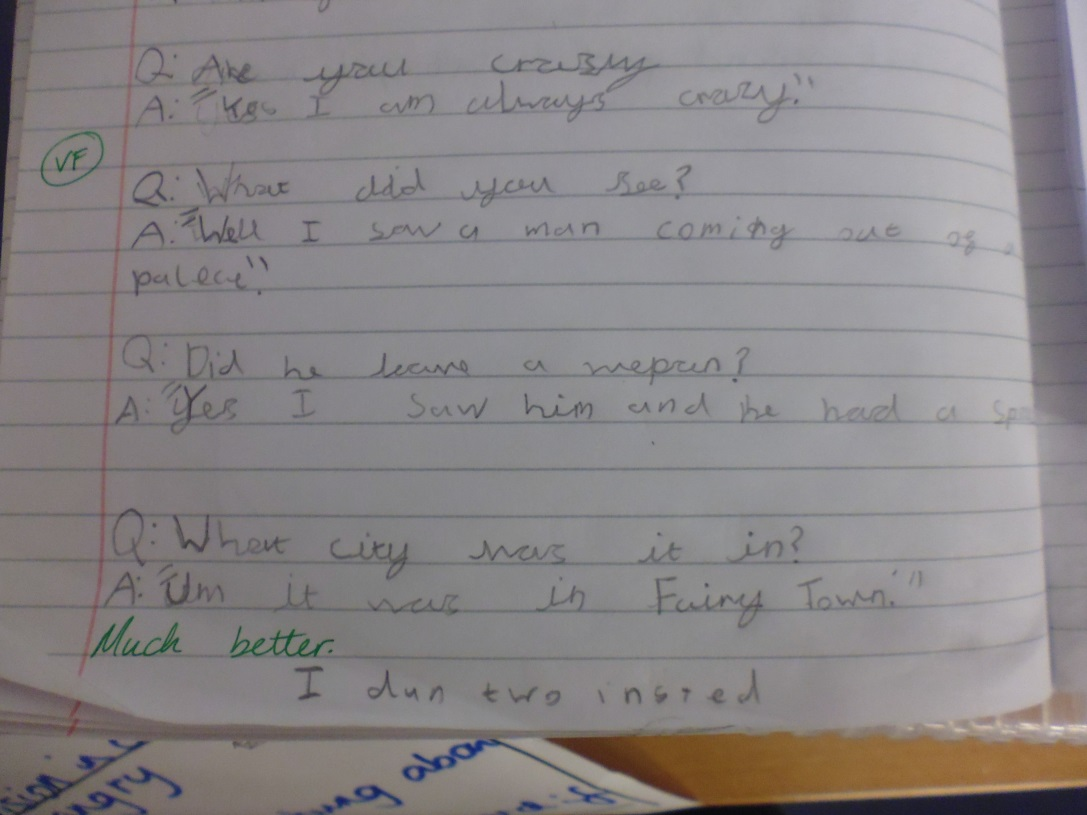 Q: Are you crazsy
A: "Yes I am always crazy."
VF
Q: What did you see?
A: "Well I saw a man coming out of a
palece".
Q: Did he leave a wepen?
A: "Yes I saw him and he had a
Q: What city was it in?
A: "Um it was in Fairy Town."
Much better.
I dun two insted